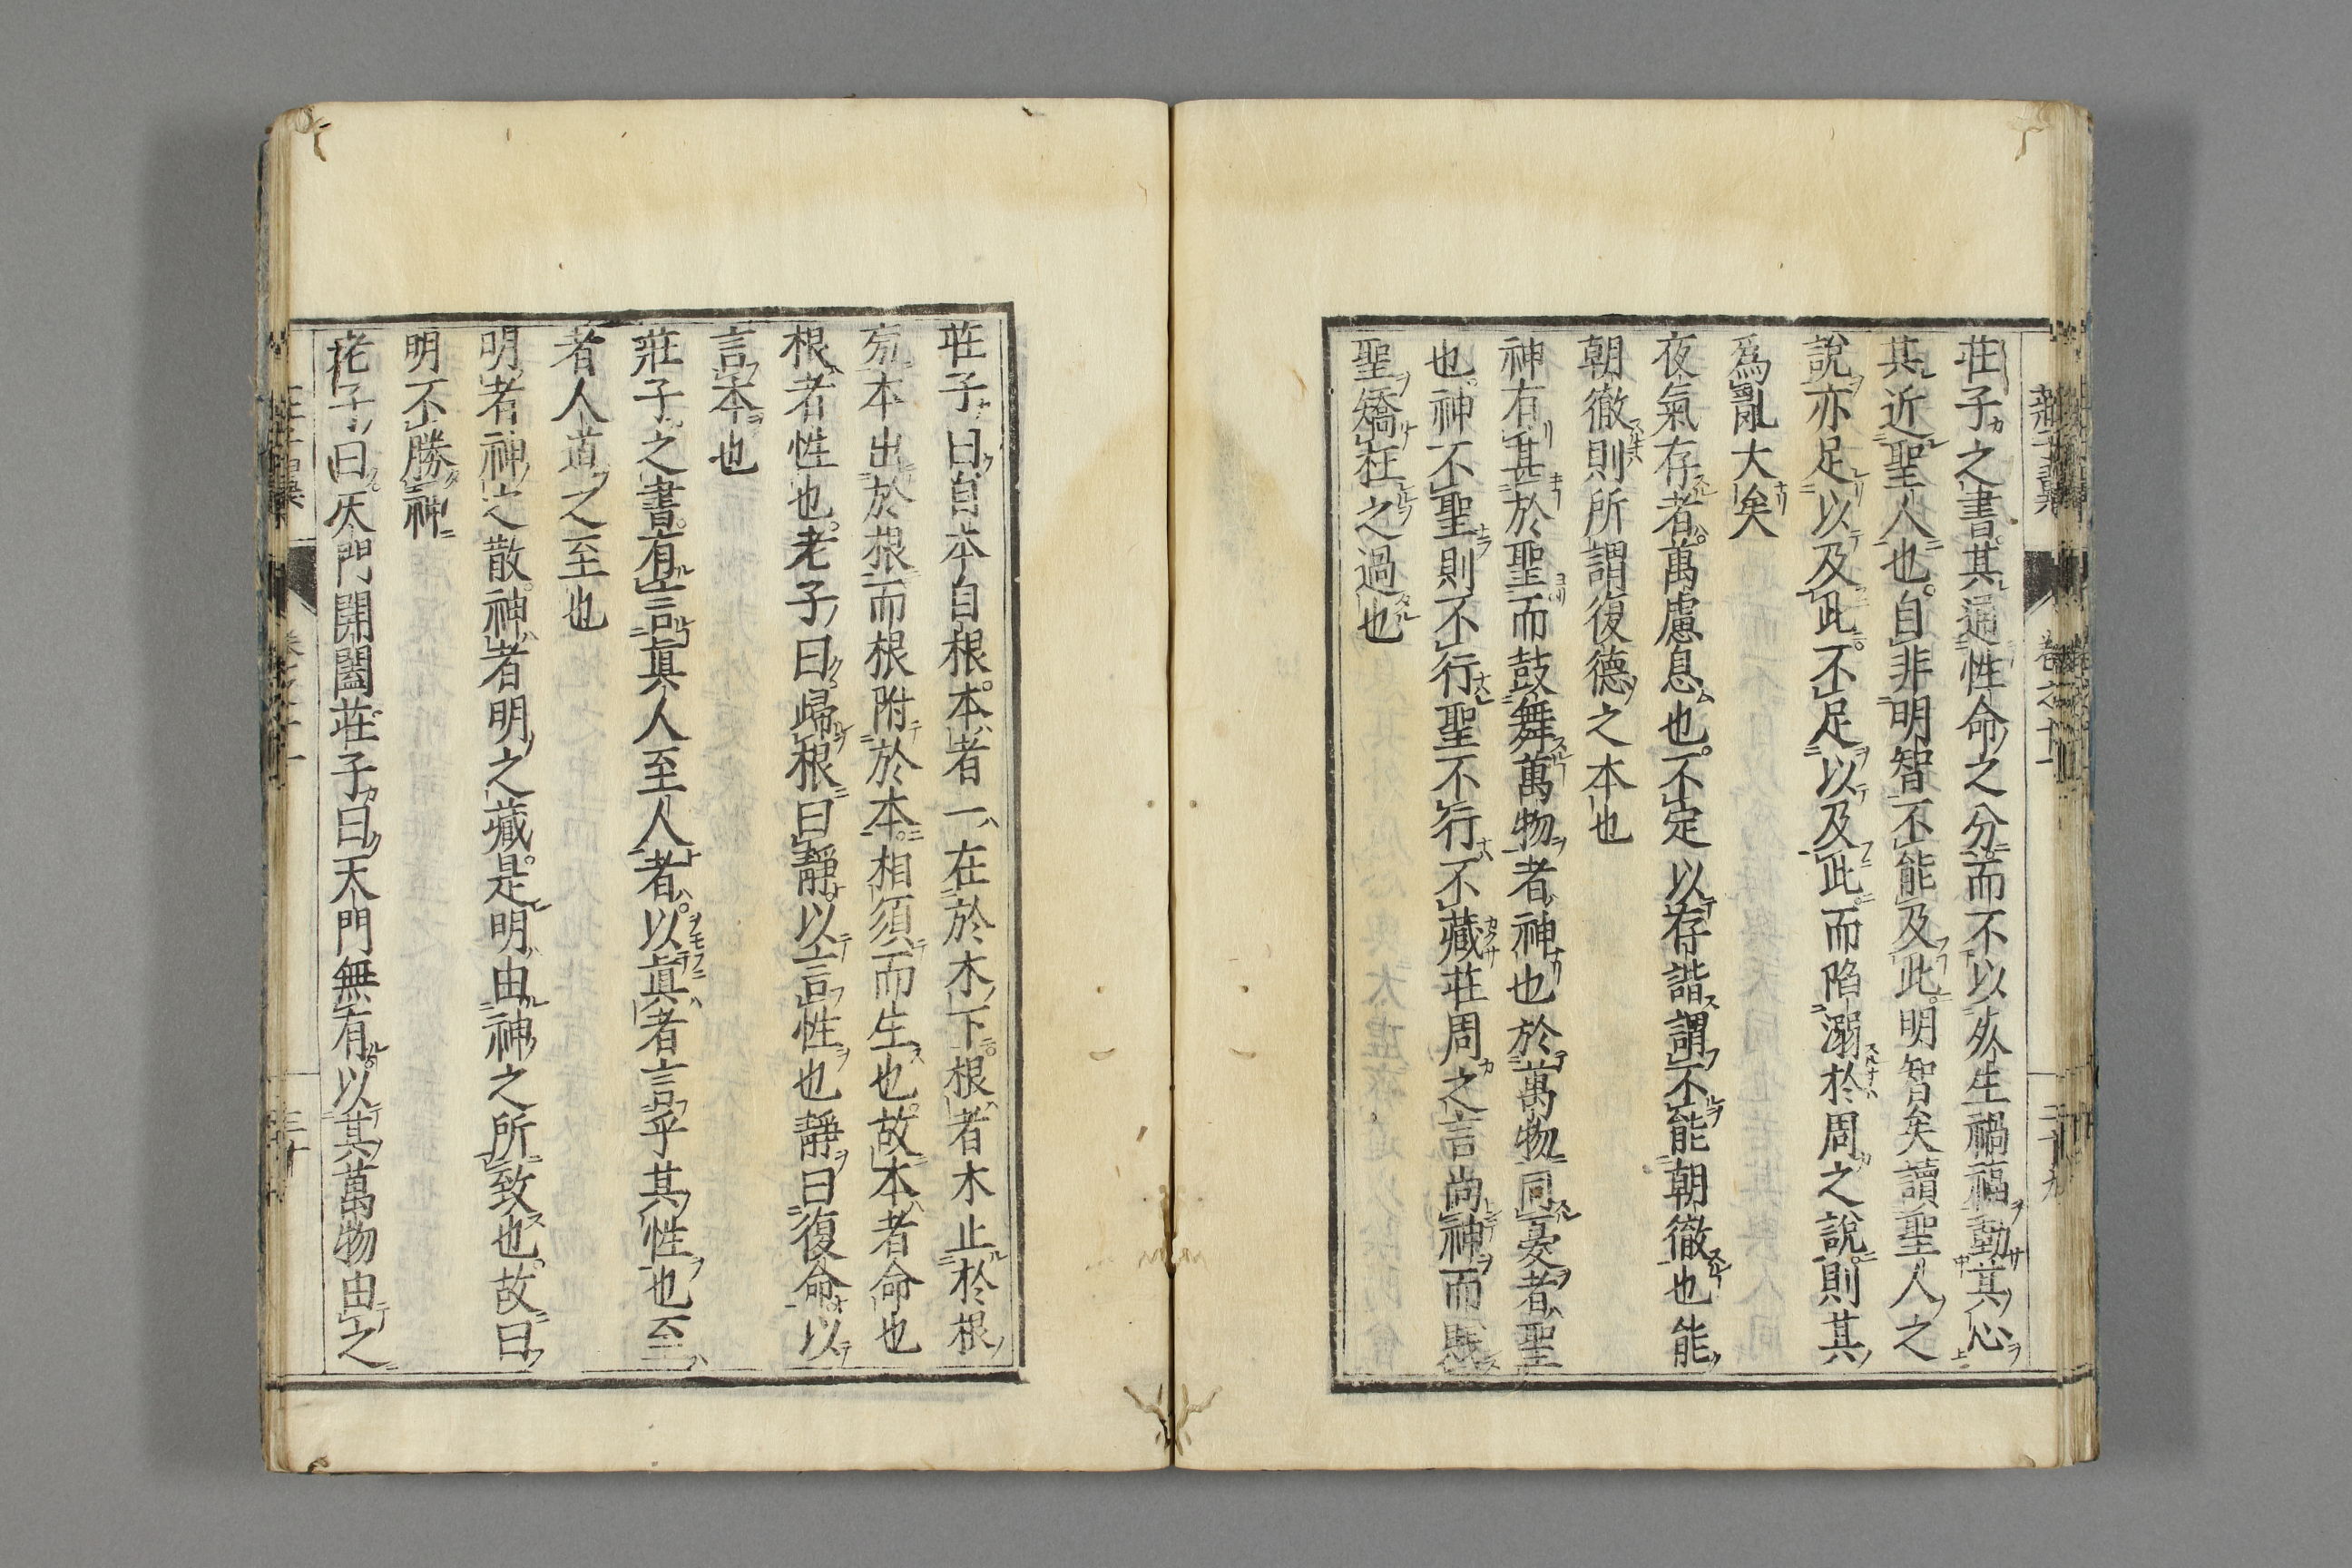 莊子之書其通性命之分而不以死生禍福動其心
其近聖人也自非明智不能及此明智矣讀聖人之
說亦足以及此不足以及此而陷溺於周之說則其
爲亂大矣
夜氣存者萬慮息也不定以存諧謂不能朝徹也能
朝徹則所謂復德之本也
神有甚於聖而鼓舞萬物者神也於萬物同憂者聖
也神不聖則不行聖不行不藏莊周之言尚神而賤
聖矯枉之過也
莊子曰自本自根本者一在於木下根者木止於根
本出於根而根附於本相須而生也故本者命也
根者性也老子曰歸根曰靜以言性也靜曰復命以
言本也
莊子之書有言眞人至人者以眞者言乎其性也至
者人道之至也
明者神之散神者明之藏是明由神之所致也故曰
明不勝神
老子曰天門開闔莊子曰天門無有以其萬物由之